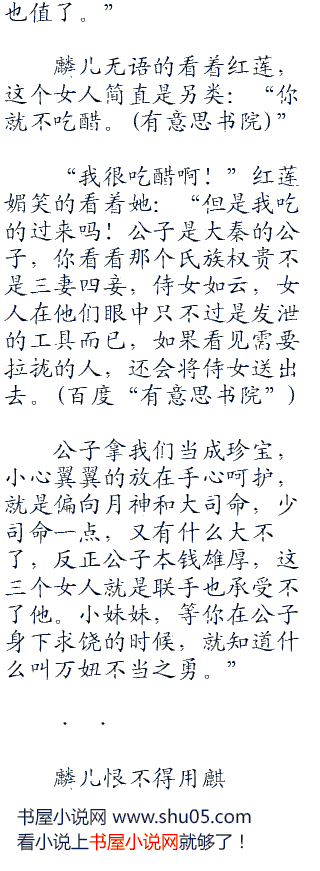 也值了。”
麟儿无语的看着红莲，
这个女人简直是另类：“你
就不吃醋。(有意思书院)”
“我很吃醋啊！”红莲
媚笑的看着她：“但是我吃
的过来吗！公子是大秦的公
子，你看看那个氏族权贵不
是三妻四妾，侍女如云，女
人在他们眼中只不过是发泄
的工具而已，如果看见需要
拉拢的人，还会将侍女送出
去。(百度“有意思书院”)
公子拿我们当成珍宝，
小心翼翼的放在手心呵护，
就是偏向月神和大司命，少
司命一点，又有什么大不
了，反正公子本钱雄厚，这
三个女人就是联手也承受不
了他。小妹妹，等你在公子
身下求饶的时候，就知道什
么叫万妞不当之勇。”
. .
麟儿恨不得用麒
书屋小说网 www.shu05.com
看小说上书屋小说网就够了！